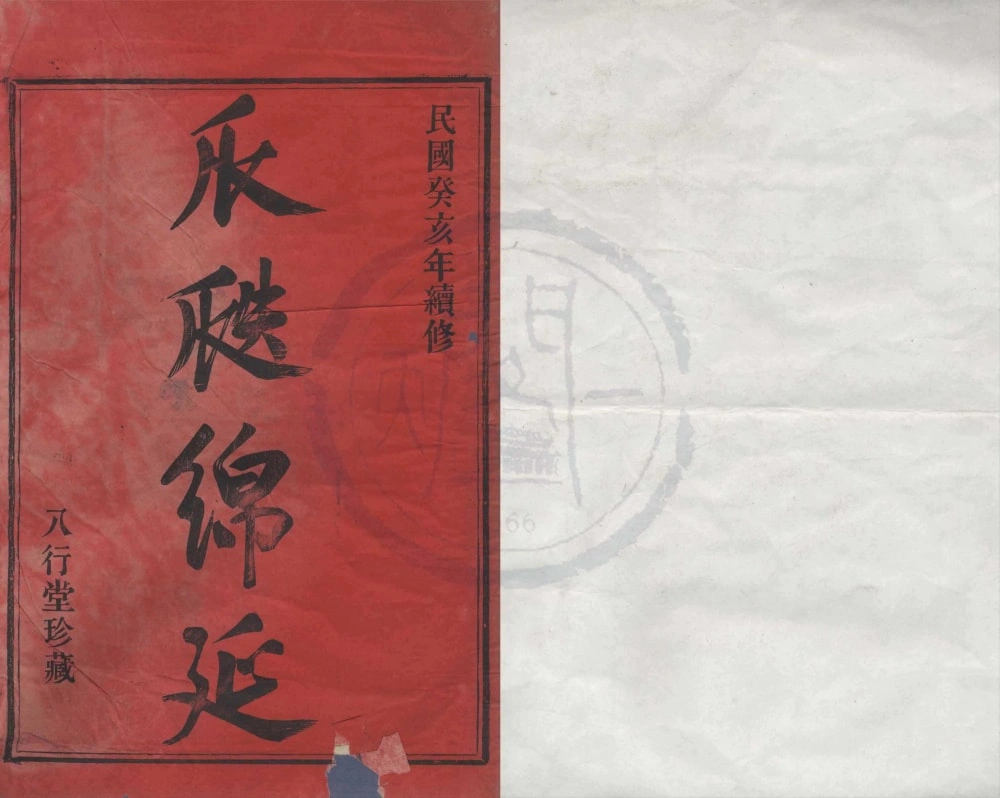 民國癸亥年續修
瓜瓞綿延
八行堂珍藏
66